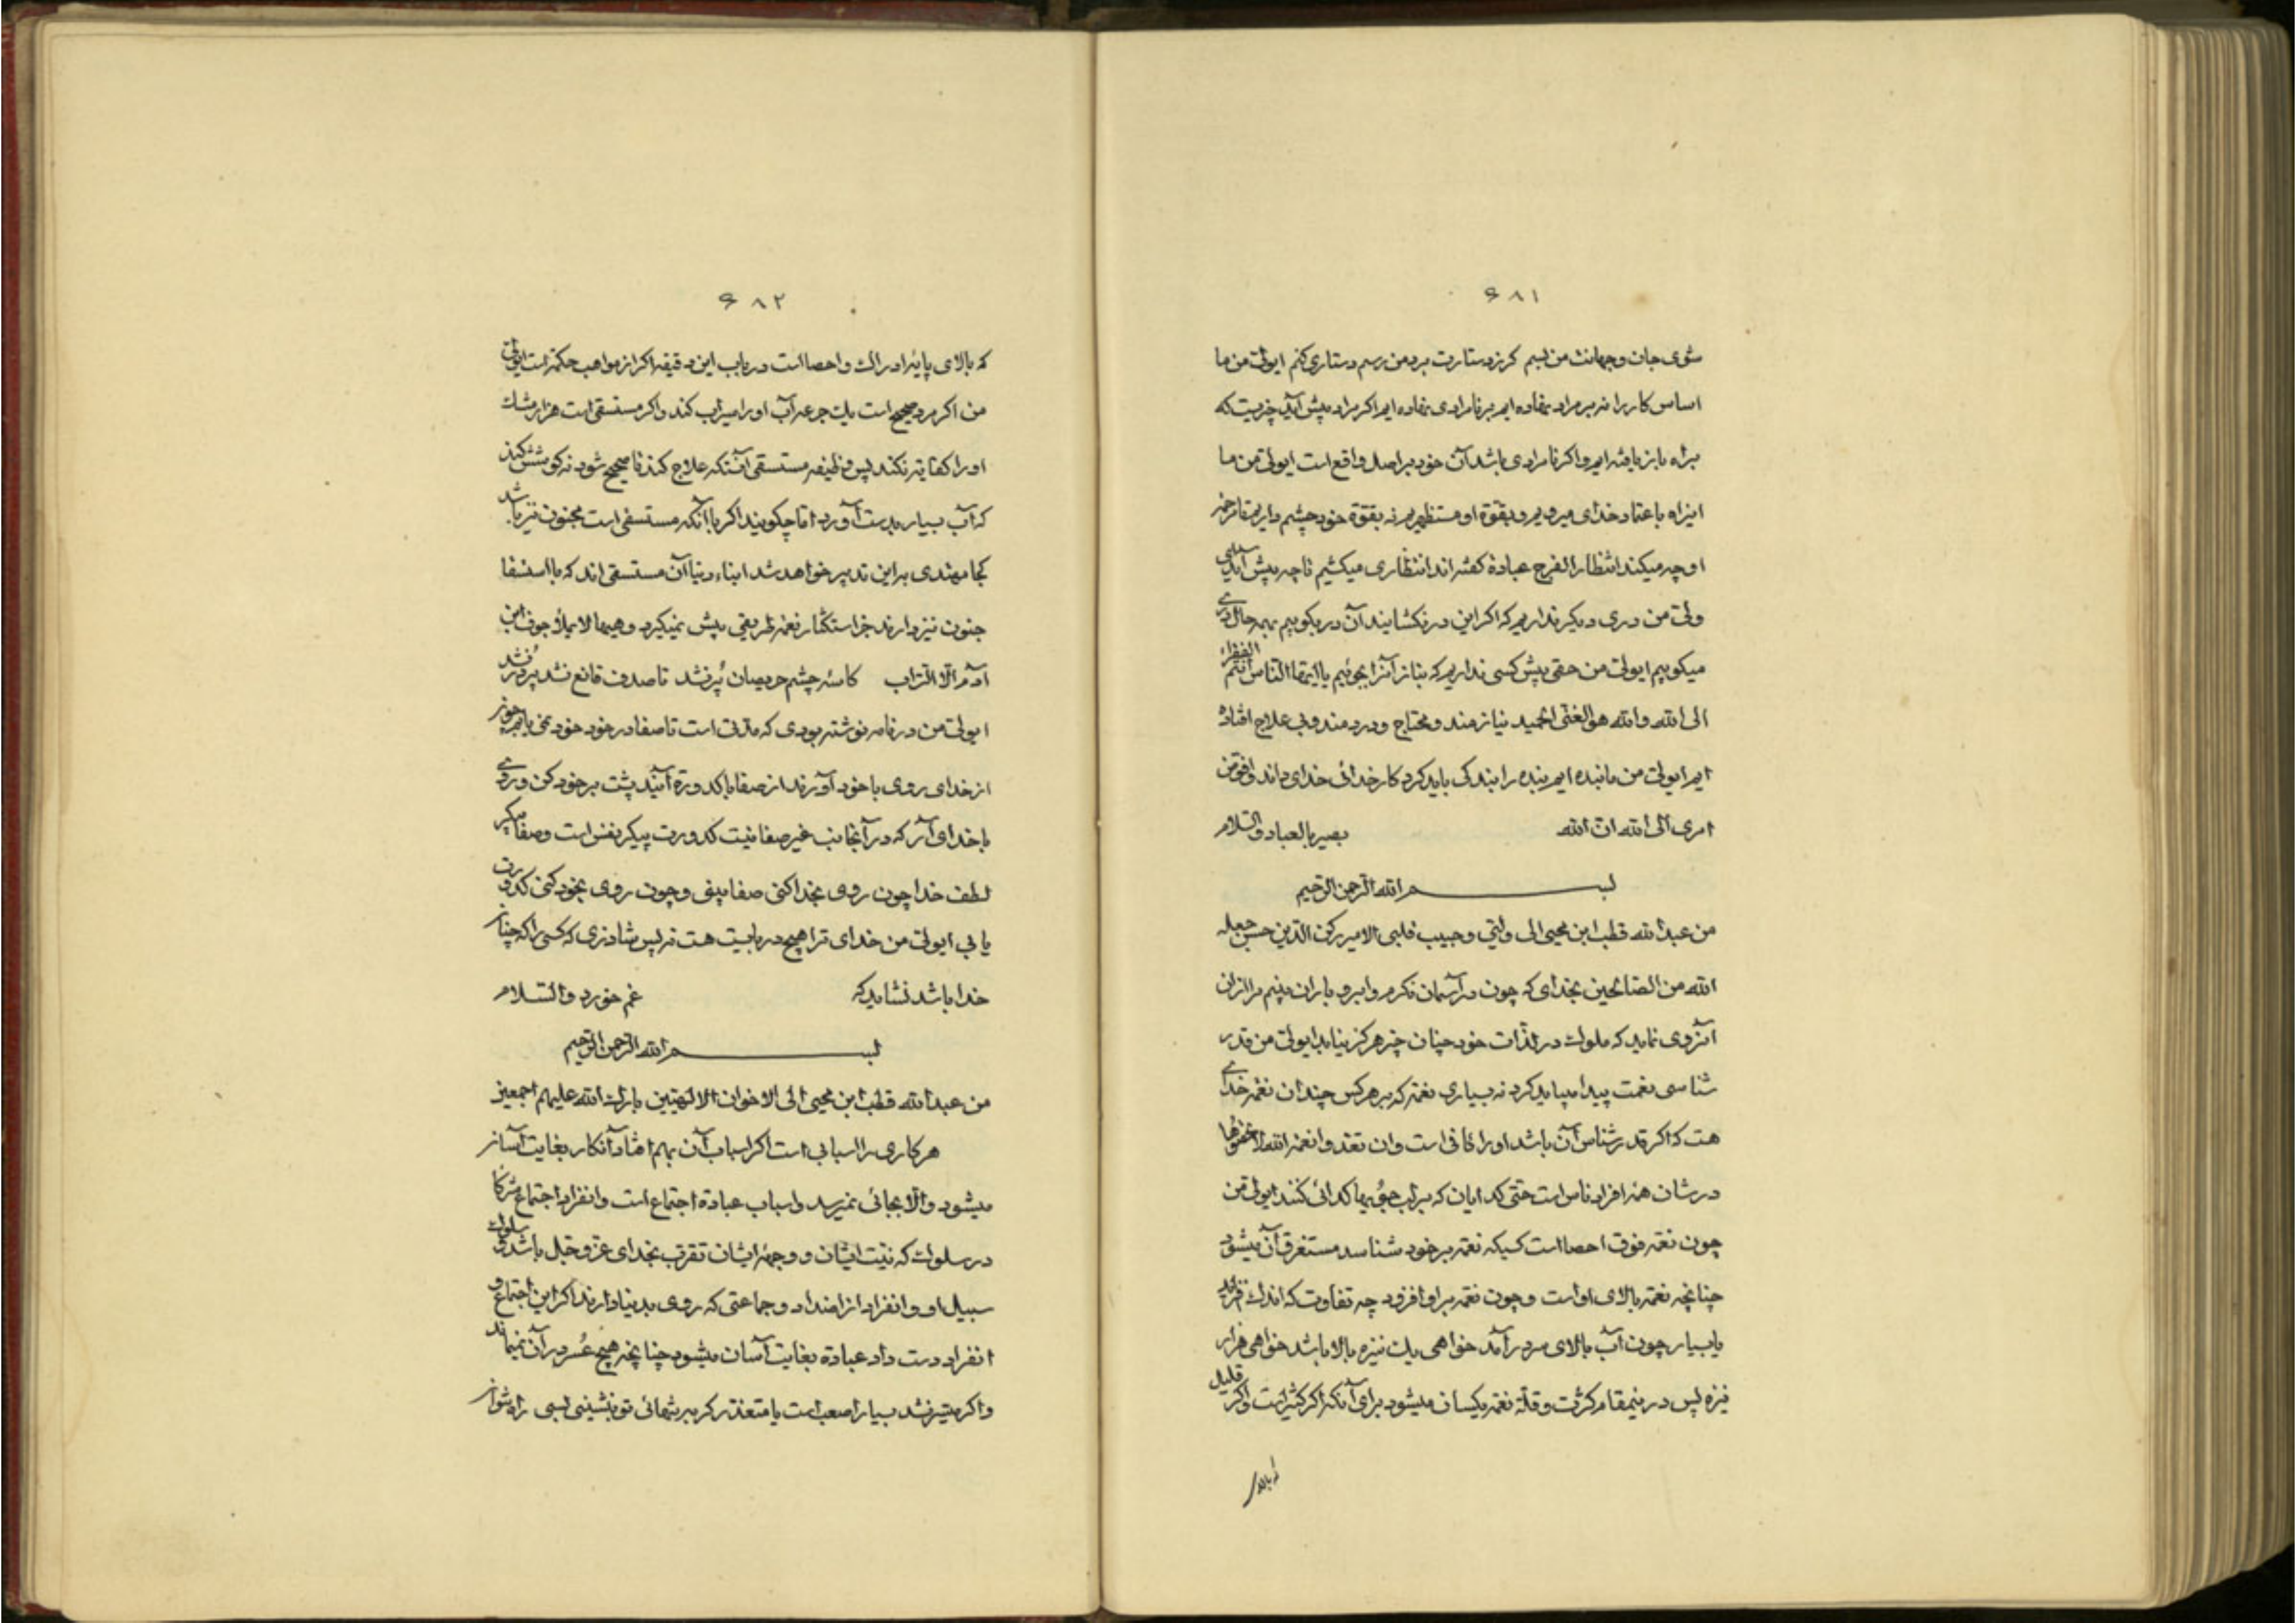 ۶۸۱
شوی جان و جهانت من بسم کرز دستارت برد من رسم دستاری کنم ایولی من ما
اساس کار را نه بر مراد نهاده ایم بر نامرادی نهاده ایم اکر مراد پیش آید چیزیست که
براه باز یافته ایم و اکر نامرادی باشد آن خود بر اصل واقع است ایولی من ما
این راه باعتماد خدای میرویم و بقوة او مستظهریم نه بقوة خود چشم داریم تا رحمة
او چه میکند انتظار الفرج عبادة کفته اند انتظاری میکشیم تا چه پیش آید ای
ولی من دری دیکر نداریم که اکر این در نکشایند آن در بکوبیم بهر حال دری
میکوبیم ایولی من حقی پیش کسی نداریم که بناز آنرا بجوئیم یا ایها الناس انتم الفقراء
الی الله والله هو الغنی الحمید نیازمند و محتاج و دردمند و بی علاج افتاده
ایم ایولی من ما بنده ایم بنده را بندکی باید کرد کار خدائی خدای داند وافوض
امری الی الله ان الله بصیر بالعباد والسلام
بسم الله الرحمن الرحیم
من عبد الله قطب ابن محیی الی ولیی و حبیب قلبی الامیر رکن الدین حسن جعله
الله من الصالحین بخدای که چون در آسمان نکرم و ابر و باران بینم مرا از آن
آنروی نماید که ملوک در لذات خود چنان چیز هرکز نیابند ایولی من قدر
شناسی نعمت پیدا میباید کرد نه بسیاری نعمة که بر هر کس چندان نعمة خدای
هست که اکر قدرشناس آن باشد او را کافی است وان تعدوا نعمة الله لا تحصوها
در شان همه افراد ناس است حتی کدایان که بر لب جویها کدائی کنند ایولی من
چون نعمة فوق احصا است کسیکه نعمة بر خود شناسد مستغرق آن میشود
چنانچه نعمة بالای او است و چون نعمة بر او افزود چه تفاوت که اندک افزاید
یا بسیار چون آب بالای مرد برآمد خواهی یک نیزه بالا باشد خواهی هزار
نیزه پس درینمقام کثرت و قلة نعمة یکسان میشود برای آنکه اکر کثیر است و اکر قلیل
که بالای
۶۸۲
که بالای پایه ادراک و احصا است دریاب این دقیقه اکر از مواهب حکمة است ایولی
من اکر مرد صحیح است یک جرعه آب او را سیراب کند و اکر مستسقی است هزار مشک
او را کفایة نکند پس وظیفه مستسقی آنستکه علاج کند تا صحیح شود نه کوشش کند
که آب بسیار بدست آورد اما چکویند اکر با آنکه مستسقی است مجنون نیز باشد
کجا مهتدی براین تدبیر خواهد شد ابناء دنیا آن مستسقی اند که با استسقا
جنون نیز دارند جز استکثار نعمة طریقی پیش نمیکیرد وهیهات لا یملأ جوف ابن
آدم الا التراب کاسه چشم حریصان پر نشد تا صدف قانع نشد پر در نشد
ایولی من در نامه نوشته بودی که مدتی است تا صفا در خود نمی یابم چون
از خدای روی با خود آورند از صفا با کدورة آیند پشت بر خود کن و روی
با خدای آر که در آنجانب غیر صفا نیست کدورت پیکر نفس است و صفا پیکر
لطف خدا چون روی بخدا کنی صفا بینی و چون روی بخود کنی کدورت
یابی ایولی من خدای ترا هیچ دربایست هست نه پس شاد زی که کسی را که چنان
خدا باشد نشاید که غم خورد والسلام
بسم الله الرحمن الرحیم
من عبد الله قطب ابن محیی الی الاخوان الالهیین بارک الله علیهم اجمعین
هر کاری را اسبابی است اکر اسباب آن بهم افتاد آنکار بغایت آسان
میشود والا بجائی نمیرسد و اسباب عبادة اجتماع است و انفراد اجتماع شرکا
در سلوک که نیت ایشان و وجهه ایشان تقرب بخدای عز و جل باشد و سلوک
سبیل او و انفراد از اضداد و جماعتی که روی بدنیا دارند اکر این اجتماع و
انفراد دست داد عبادة بغایت آسان میشود چنانچه هیچ عسر در آن نمیماند
و اکر میسر نشد بسیار اصعب است یا متعذر کر بر تنهائی تو بنشینی بسی راه دشوار